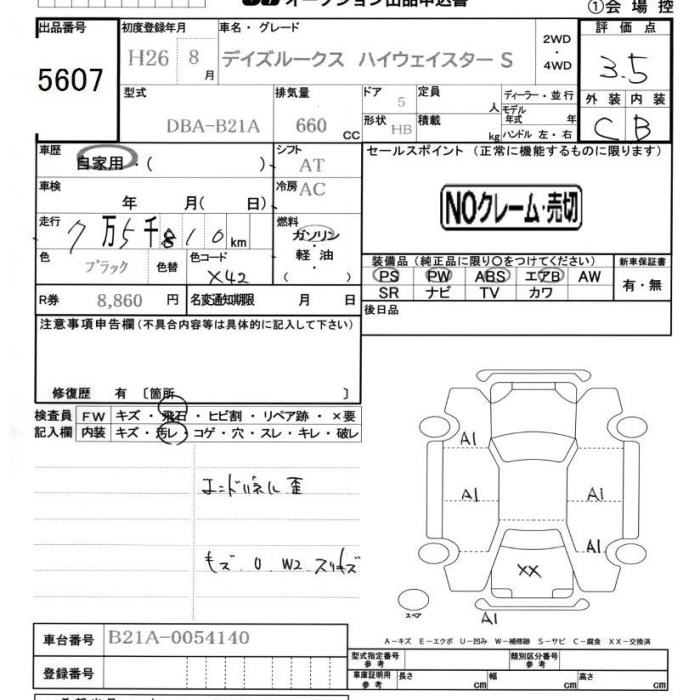 オークション出品申込書
①会場控
出品番号 初度登録年月 車名・グレード 評価点
5607 H26 8月 デイズルークス ハイウェイスター S 2WD・4WD 3.5
型式 排気量 ドア 定員 人 ディーラー・並行 外装 内装
DBA-B21A 660 CC 5 モデル年式 年 C B
形状 HB 積載 kg ハンドル 左・右
車歴 自家用・( )・ シフト AT セールスポイント(正常に機能するものに限ります)
車検 年 月( 日) 冷房 AC
NOクレーム・売切
走行 7万5千810km 燃料 ガソリン・軽油・( )
色 ブラック 色替 色コード X42
装備品(純正品に限り○をつけてください) 新車保証書
PS PW ABS エアB AW 有・無
SR ナビ TV カワ
R券 8,860円 名変通知期限 月 日
後日品
注意事項申告欄(不具合内容等は具体的に記入して下さい)
修復歴 有〔箇所 〕
検査員 FW キズ・飛石・ヒビ割・リペア跡・×要
記入欄 内装 キズ・汚レ・コゲ・穴・スレ・キレ・破レ
エンドパネル歪
キズ.U.W2 スリキズ
A1
A1 A1
A1
XX
スペア
A1
A-キズ E-エクボ U-凹み W-補修跡 S-サビ C-腐食 XX-交換済
車台番号 B21A-0054140
型式指定番号 参考 類別区分番号 参考
登録番号
車庫証明用 参考 長さ cm 幅 cm 高さ cm